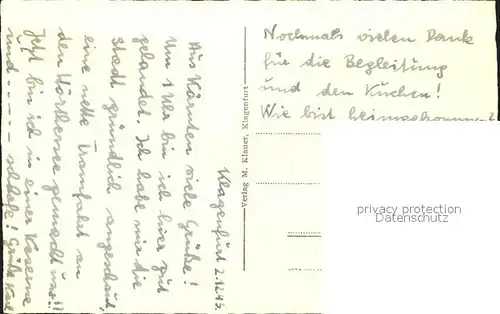 Klagenfurt 2.12.45.
Aus Kärnten viele Grüße!
Um 1 Uhr bin ich hier gut
gelandet. Ich habe mir die
Stadt gründlich angeschaut,
eine nette Tramfahrt an
den Wörthersee gemacht u.s.!!
Jetzt bin ich in einer Kaserne
und ---- schlafe! Grüße Karl
Verlag M. Klauer, Klagenfurt
Nochmals vielen Dank
für die Begleitung
und den Kuchen!
Wie bist heimgekommen
privacy protection
Datenschutz